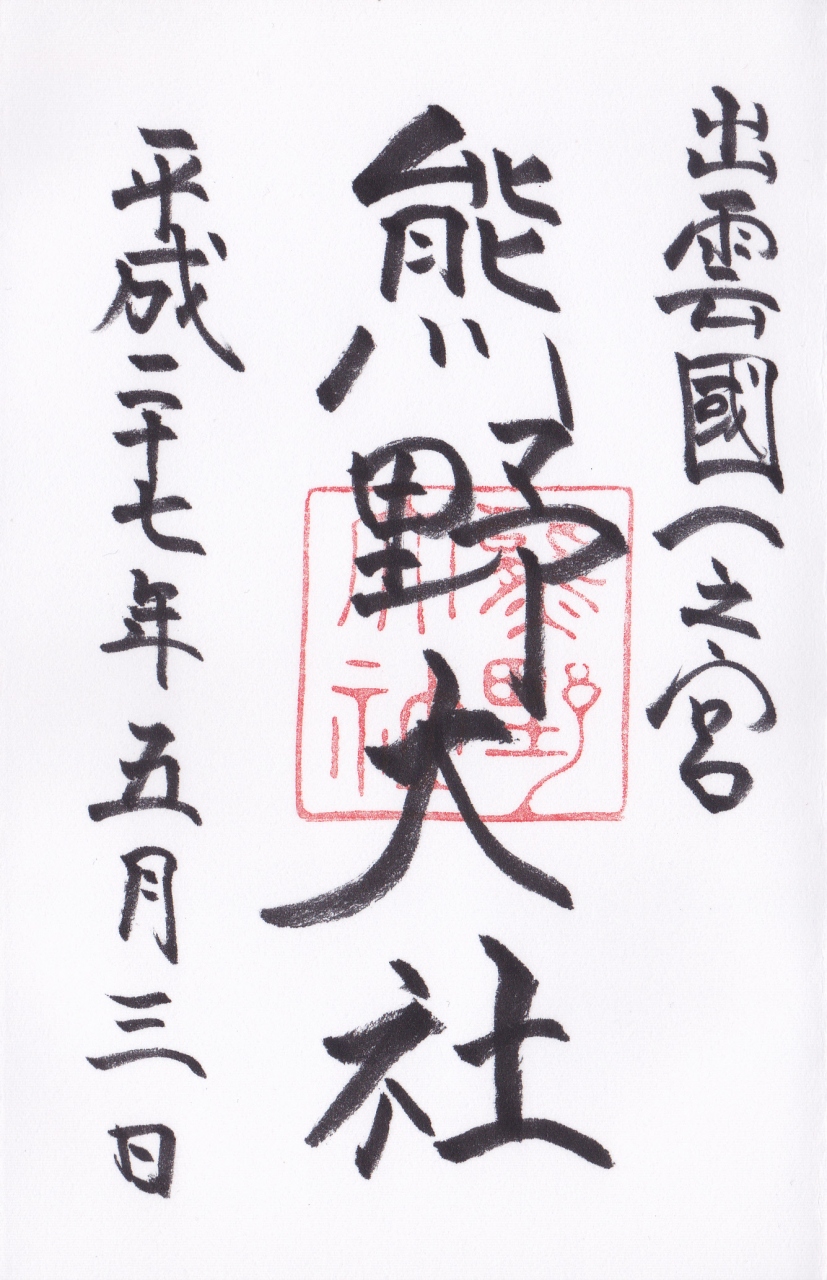 出雲國一之宮
熊野大社
平成二十七年五月三日
熊野
大社